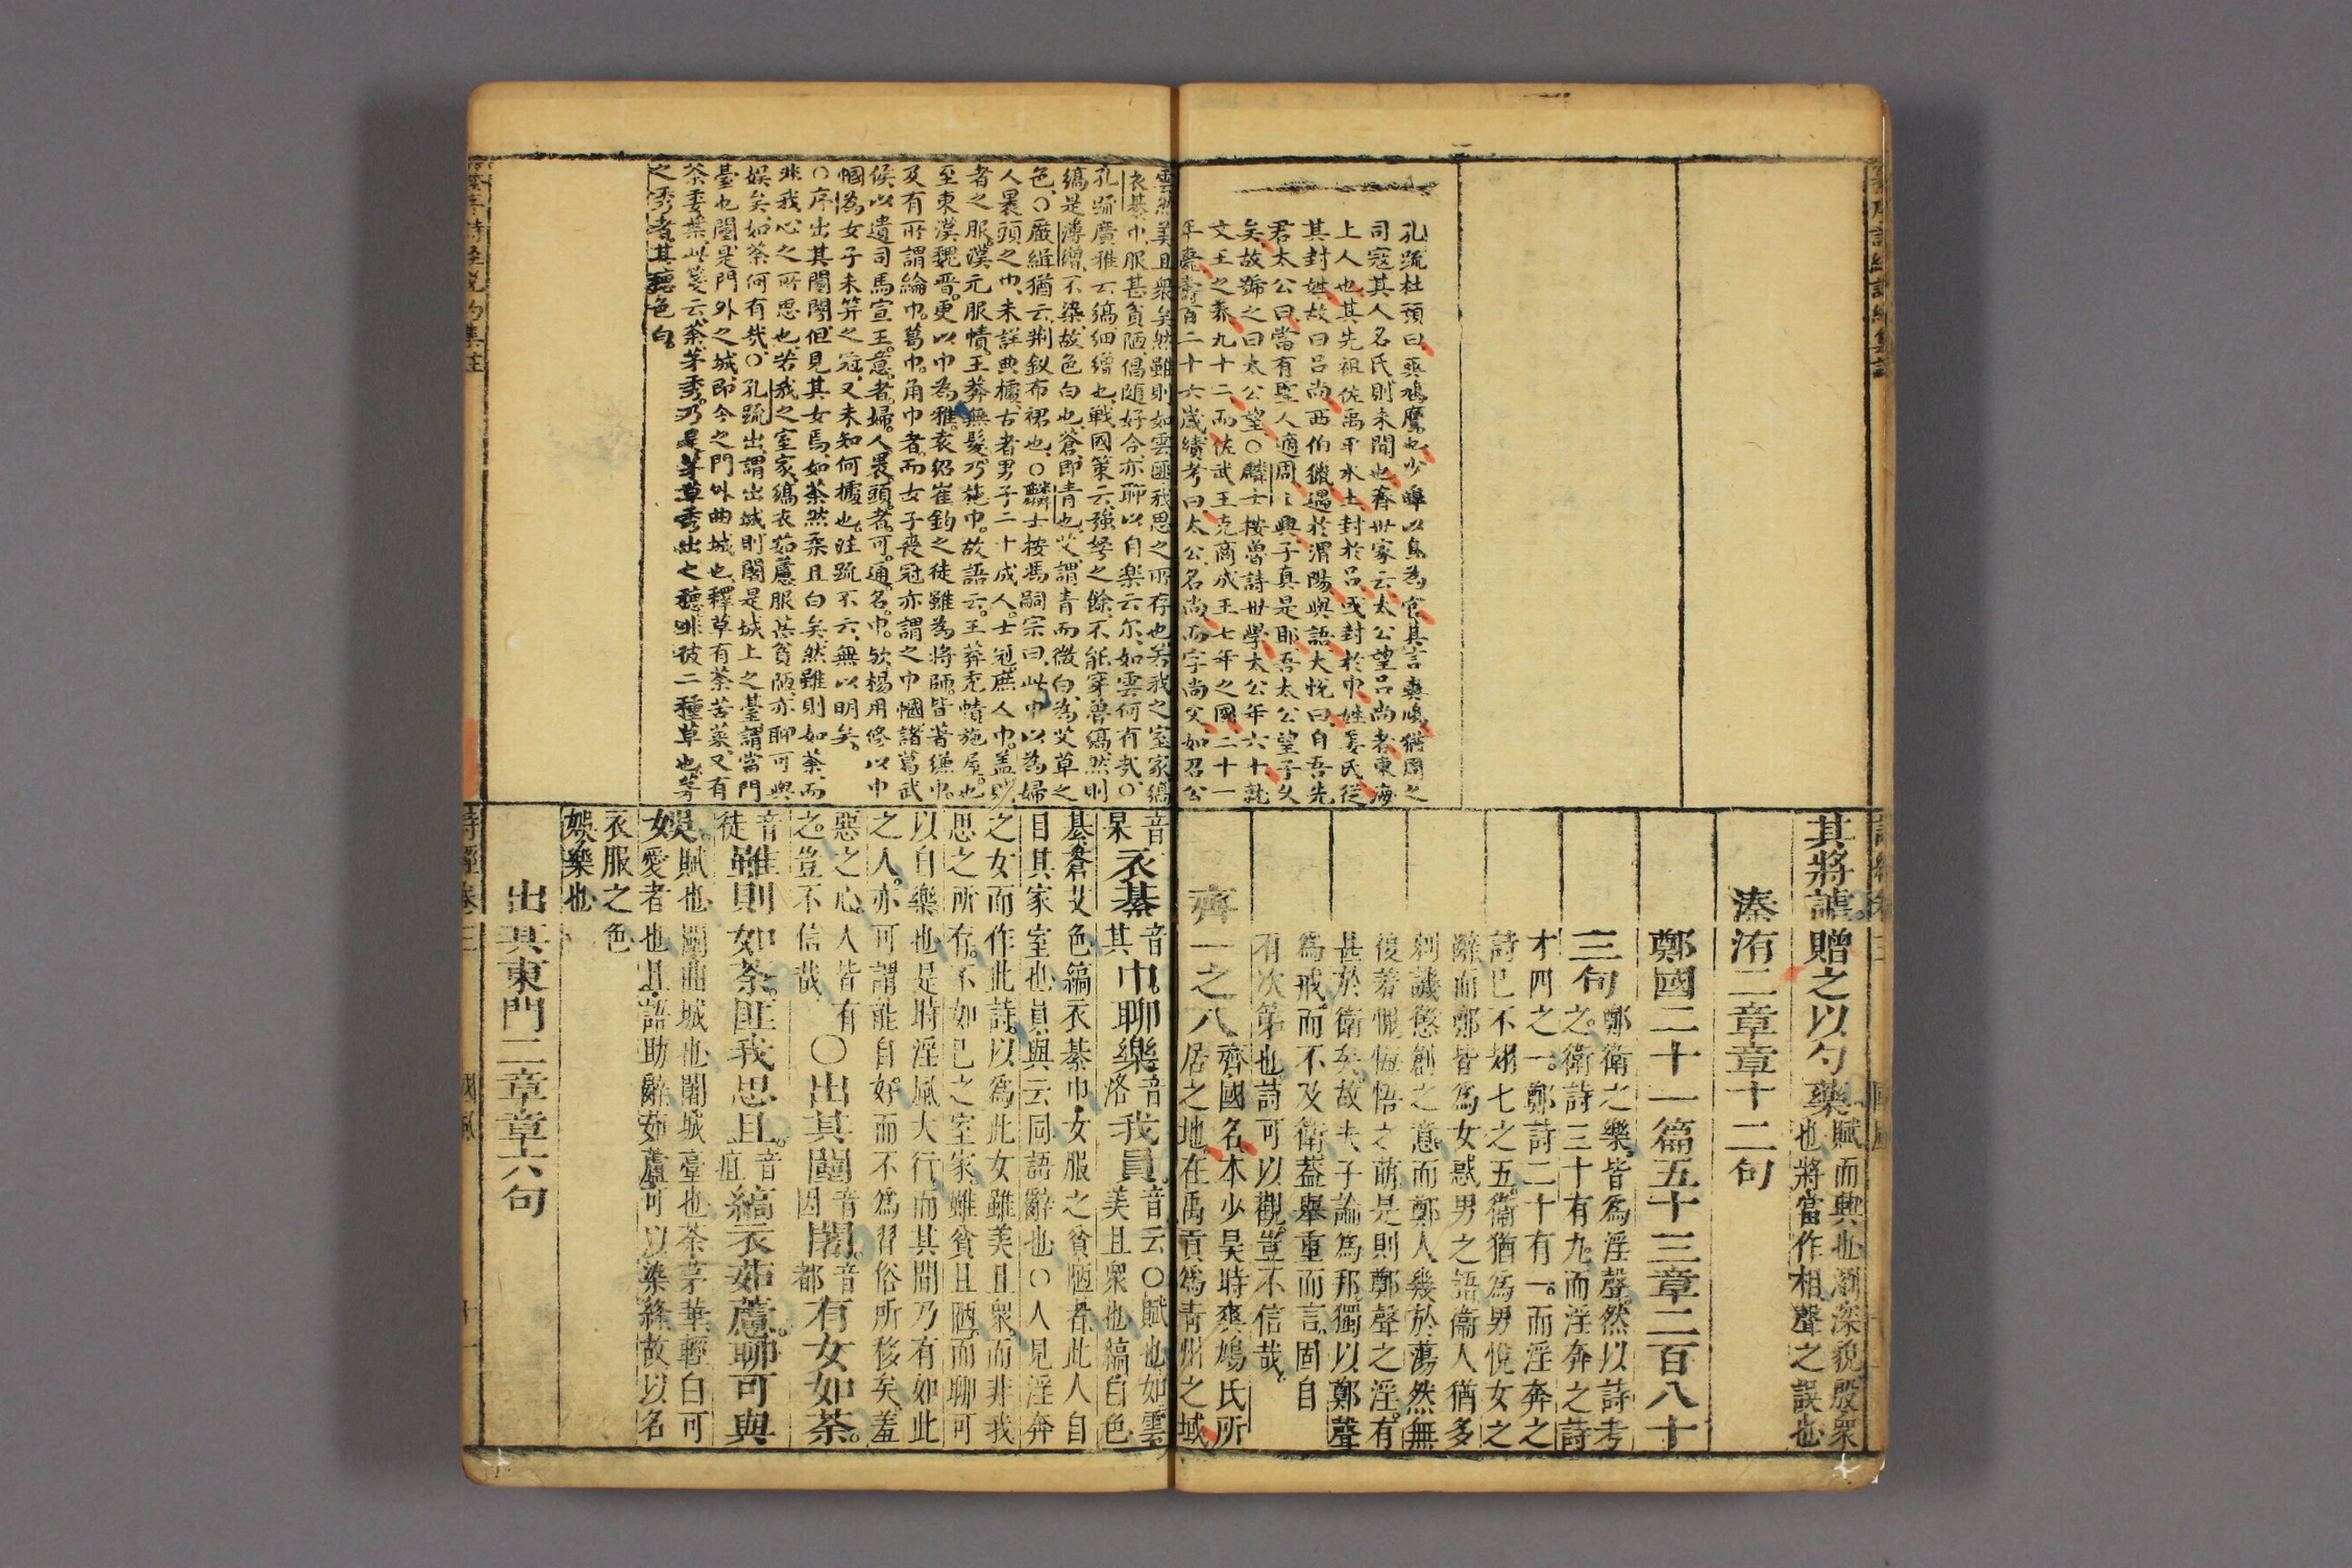 孔疏杜預曰爽鳩鷹也少皞以鳥為官其言爽鳩猶周之
司寇其人名氏則未聞也齊世家云太公望呂尚者東海
上人也其先祖佐禹平水土封於呂或封於申姓姜氏從
其封姓故曰呂尚西伯獵遇於渭陽與語大悅曰自吾先
君太公曰當有聖人適周周興子真是耶吾太公望子久
矣故號之曰太公望○麟士按魯詩世學太公年六十就
文王之養九十二而佐武王克商成王七年之國二十一
年薨壽百二十六歲續考曰太公名尚而字尚父如召公
其將謔贈之以勺藥賦而興也瀏深貌殷衆
也將當作相聲之誤也
溱洧二章章十二句
鄭國二十一篇五十三章二百八十
三句鄭衛之樂皆爲淫聲然以詩考
之衛詩三十有九而淫奔之詩
才四之一鄭詩二十有一而淫奔之
詩已不翅七之五衛猶爲男悅女之
辭而鄭皆爲女惑男之語衛人猶多
刺譏懲創之意而鄭人幾於蕩然無
復羞愧悔悟之萌是則鄭聲之淫有
甚於衛矣故夫子論爲邦獨以鄭聲
爲戒而不及衛蓋舉重而言固自
有次第也詩可以觀豈不信哉
齊一之八齊國名本少昊時爽鳩氏所
居之地在禹貢爲青州之域
雲然美且衆矣然雖則如雲匪我思之所存也若我之室家縞
衣綦巾服甚貧陋倡隨好合亦聊以自樂云尔如雲何有哉○
孔疏廣雅云縞細繒也戰國策云強弩之餘不能穿魯縞然則
縞是薄繒不染故色白也蒼即青也艾謂青而微白為艾草之
色○嚴緝猶云荆釵布裙也○麟士按馮嗣宗曰此巾以為婦
人裹頭之巾未詳典據古者男子二十成人士冠庶人巾蓋賤
者之服漢元服幘王莽無髮乃施巾故語云王莽禿幘施屋也
至東漢魏晋更以巾為雅袁紹崔鈞之徒雖為將師皆著縑巾
及有所謂綸巾葛巾角巾者而女子喪冠亦謂之巾幗諸葛武
侯以遺司馬宣王意者婦人裹頭者可通名巾歟楊用修以巾
幗為女子未笄之冠又未知何據也注疏不云無以明矣
○序出其闉闍但見其女焉如荼然衆且白矣然雖則如荼而
非我心之所思也若我之室家縞衣茹藘服甚貧陋亦聊可與
娛矣如荼何有哉○孔疏出謂出城則闍是城上之臺謂當門
臺也闉是門外之城即今之門外曲城也釋草有荼苦菜又有
荼委葉此箋云荼茅秀乃是茅草秀出之穗非彼二種草也茅
之秀者其穗色白
音
杲衣綦音
其巾聊樂音
洛我員音云○賦也如雲
美且衆也縞白色
綦蒼艾色縞衣綦巾女服之貧陋者此人自
目其家室也員與云同語辭也○人見淫奔
之女而作此詩以爲此女雖美且衆而非我
思之所存不如己之室家雖貧且陋而聊可
以自樂也是時淫風大行而其間乃有如此
之人亦可謂能自好而不爲習俗所移矣羞
惡之心人皆有
之豈不信哉○出其闉音
因闍音
都有女如荼
音
徒雖則如荼匪我思且音
疽縞衣茹藘聊可與
娛賦也闉曲城也闍城臺也荼茅華輕白可
愛者也且語助辭茹藘可以染絳故以名
衣服之色
娛樂也
出其東門二章章六句